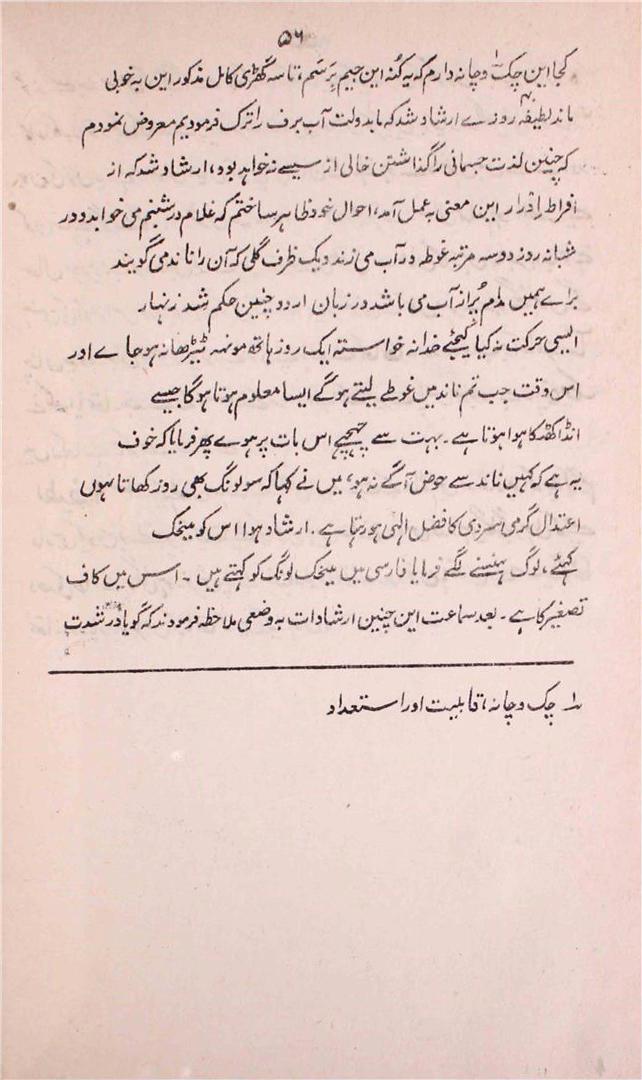 ۵۶
کجا این چک و چانہ دارم کہ بہ کُنہ این جیم بَرسَم، تا سہ گھڑی کامل مذکور این بہ خوبی
ماند لطیفہ روزے ارشاد شد کہ مابدولت آب برف را ترک فرمودیم معروض نمودم
کہ چنین لذت جسمانی را گذاشتن خالی از سببے نہ خواہد بود، ارشاد شد کہ از
افراط اِدرار این معنی بہ عمل آمد، احوال خود ظاہر ساختم کہ غلام در شبنم می خوابد و در
شبانہ روز دو سہ مرتبہ غوطہ در آب می زند و یک ظرف گلی کہ آن را ناند می گویند
براے ہمیں مدام پُر از آب می باشد در زبان اردو چنین حکم شد زنہار
ایسی حرکت نہ کیا کیجئے خدا نہ خواستہ ایک روز ہاتھ مونہہ ٹیڑھا نہ ہو جاے اور
اس وقت جب تم ناند میں غوطے لیتے ہوگے ایسا معلوم ہوتا ہوگا جیسے
انڈا کھڈکا ہوا ہوتا ہے۔ بہت سے چہچہے اس بات پر ہوے پھر فرمایا کہ خوف
یہ ہے کہ کہیں ناند سے حوض آگے نہ ہو، میں نے کہا کہ سو لونگ بھی روز کھاتا ہوں
اعتدال گرمی سردی کا فضل الٰہی ہو رہتا ہے۔ ارشاد ہوا اس کو میخک
کہئے، لوگ ہنسنے لگے فرمایا فارسی میں میخک لونگ کو کہتے ہیں۔ اس میں کاف
تصغیر کا ہے۔ بعد سماعت این چنین ارشادات بہ وضعی ملاحظہ فرمودند کہ گویا در شدت
۱؂ چک و چانہ، قابلیت اور استعداد